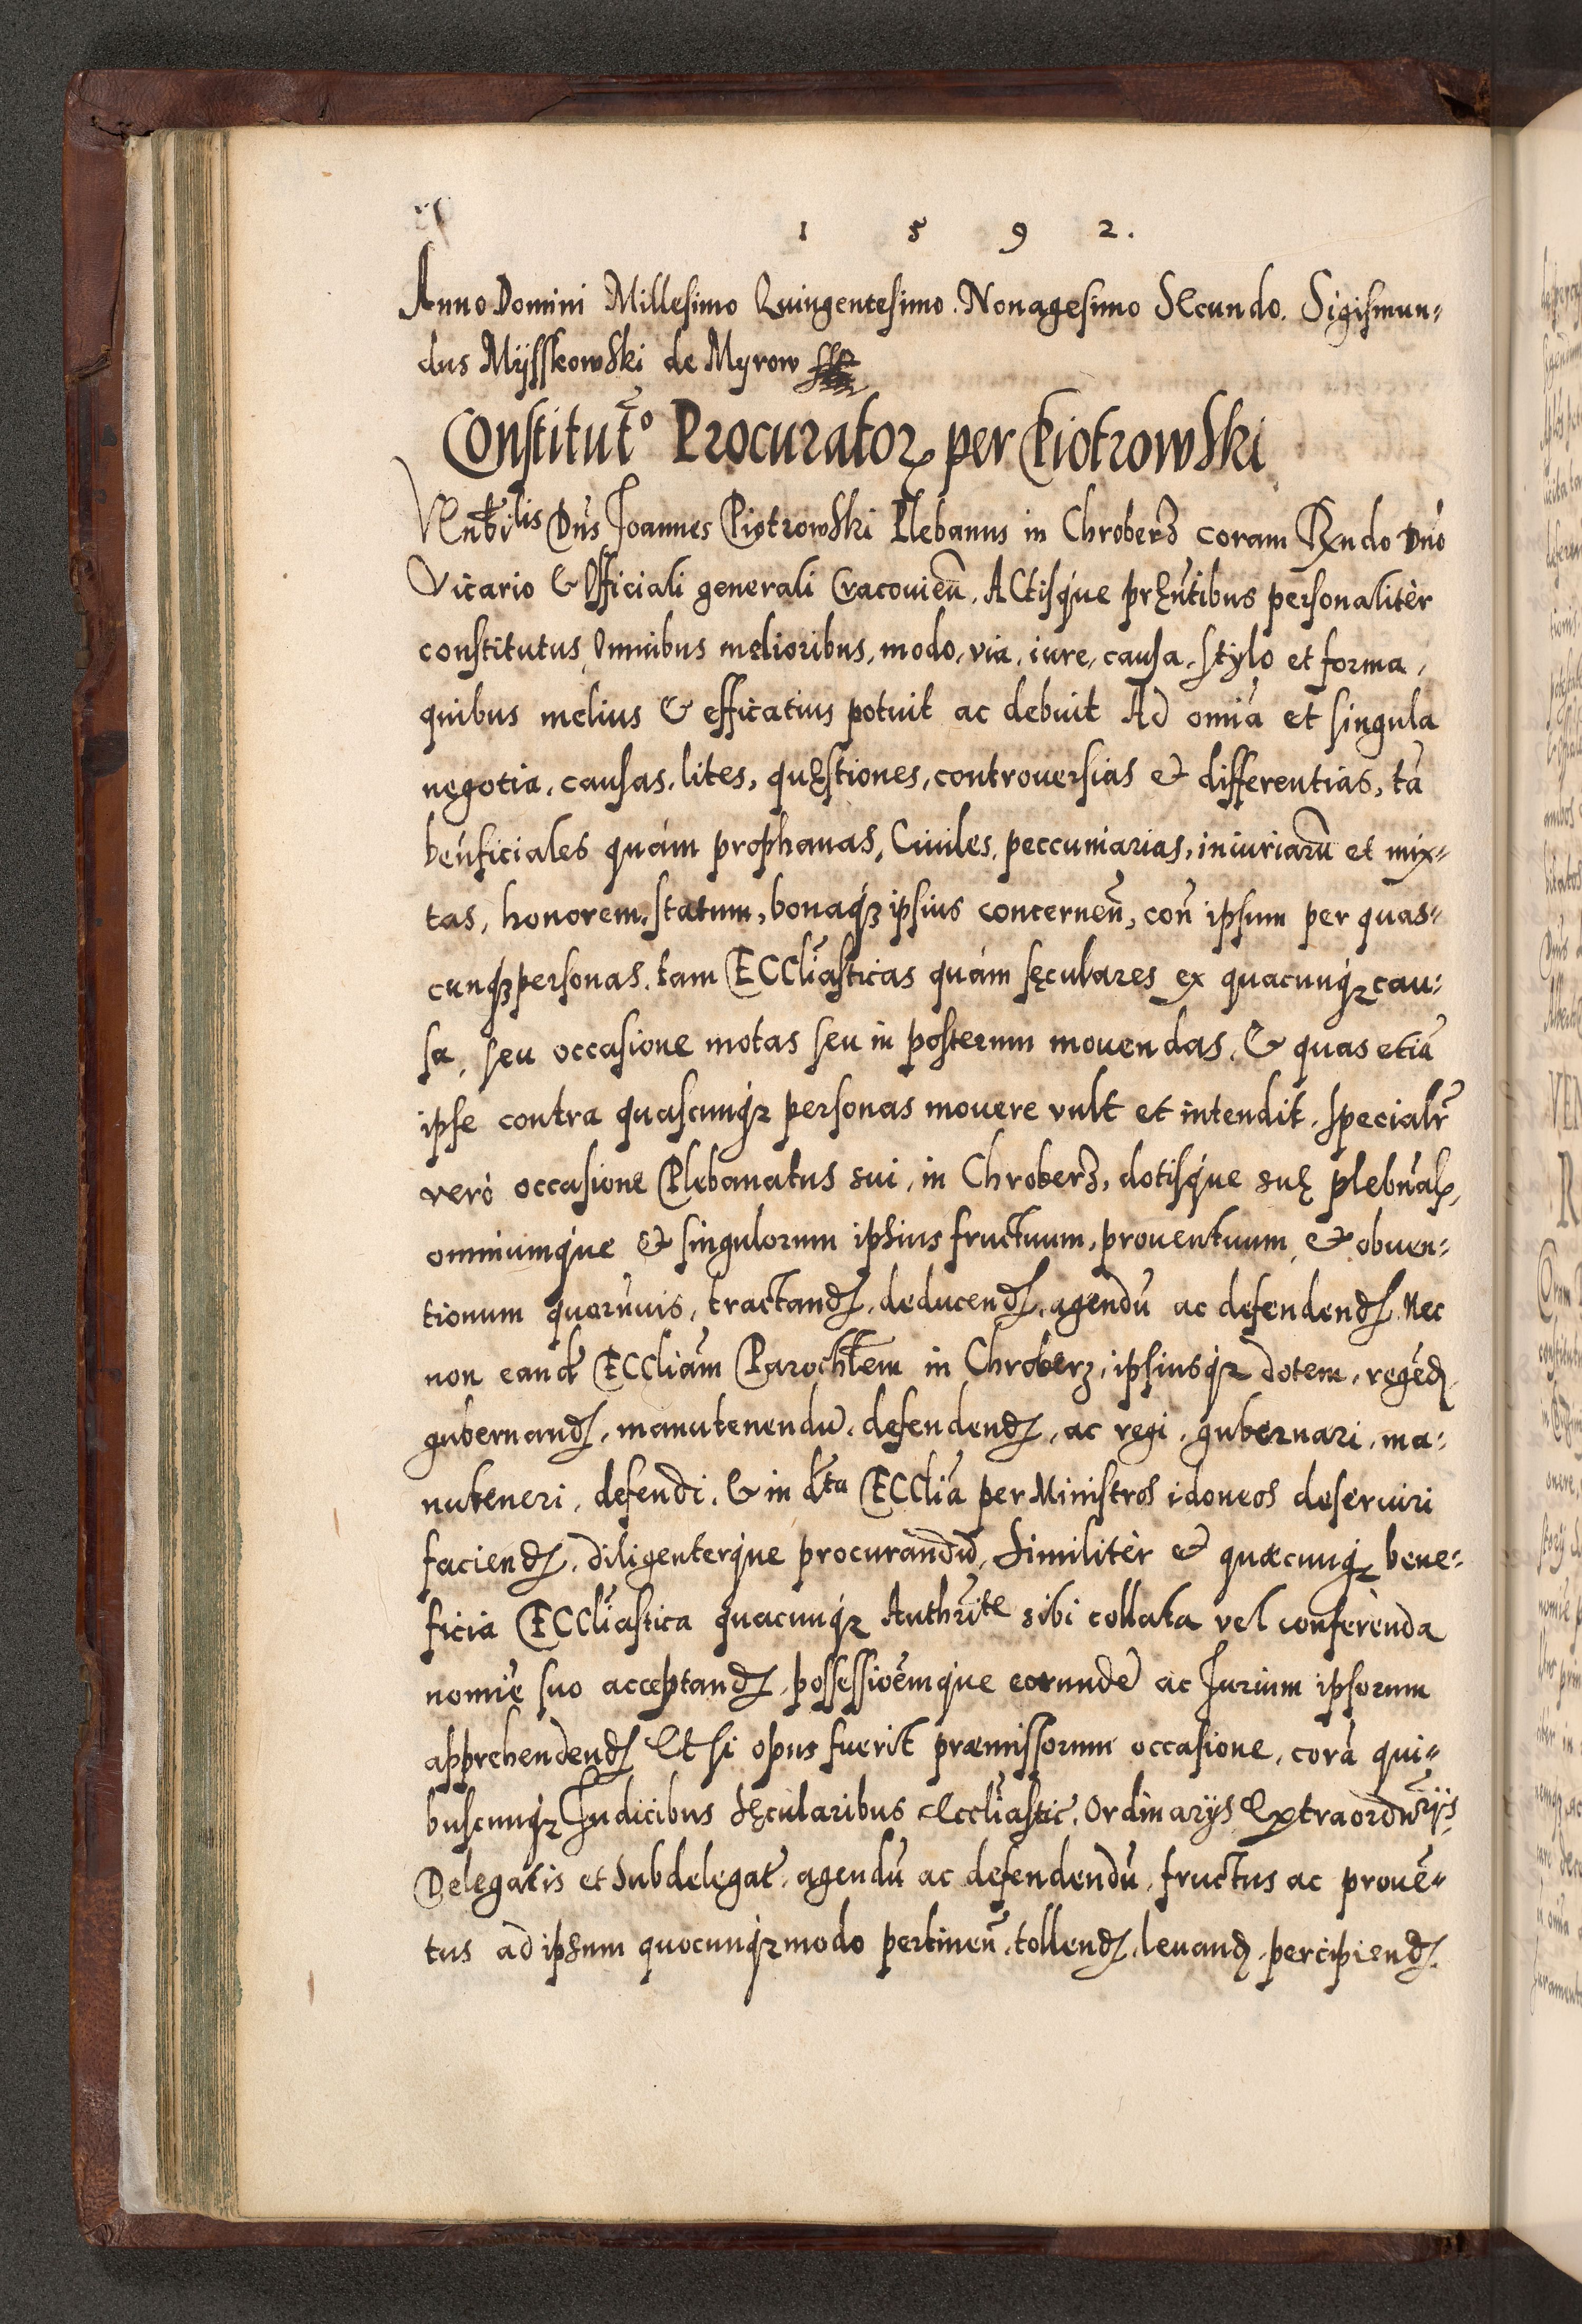 1 5 9 2.
Anno Domini Millesimo Quingentesimo. Nonagesimo SEcundo. Sigismun-
dus Mÿsskowski de Myrow
Constitut̃o Procurator per Piotrowski
VEnb̃ilis Dn̄s Joannes Piotrowski Plebanus in Chroberz coram Rx̃ndo Dnō
Vicario & Officiali generali Cracouien̄. ACtisq́ue pręn̄tibus personalitèr
constitutus Omnibus melioribus, modo, via, iure, causa, stÿlo et forma,
quibus melius & efficatius potuit ac debuit Ad omīa et singula
negotia, causas, lites, quęstiones, controuersias & differentias, tā
ben̄ficiales quám prophanas, Ciuiles, peccuniarias, iniuriarū et mix-
tas, honorem, statum, bonaq́ꝫ ipsius concernen̄, con̄ ipsum per quas-
cunq́ꝫ personas, tam ECCĺiasticas quám sęculares ex quacunq́ꝫ cau-
sa, seu occasione motas seu in posterum mouendas, & quas etiā
ipse contra quascunq́ꝫ personas mouere vult et intendit, specialr̄
verò occasione Plebanatus sui, in Chroberz, dotisq́ue suę plebn̄al,
omniumq́ue & singulorum ipsius fructuum, prouentuum, & obuen-
tionum quorūuis, tractanđ, deducenđ, agendū ac defendenđ. Nec
non eanđ ECCliam̄ Paroch̃lem in Chroberz, ipsiusq́ꝫ dotem, regēđ,
gubernanđ, manutenendū, defendenđ, ac regi, gubernari, ma-
nuteneri, defendi, & in đta ECClīa per Ministros idoneos deseruiri
facienđ, diligenterq́ue procurandū, Similitèr & quæcunq́ꝫ bene-
ficia ECCĺiastica quacunq́ꝫ Authr̄ite sibi collata vel conferènda
nomīe suo acceptanđ, possessioēmque eorundē ac Jurium ipsorum
apprehendenđ Et si opus fuerit præmissorum occasione, corā qui-
buscunq́ꝫ Judicibus sęcularibus Eccĺiastic̄. Ordinarÿs Extraordn̄rÿs
Delegatis et Subdelegat̄. agendū ac defendendū, fructus ac prouē-
tus ad ipsum quocunq́ꝫmodo pertinen̄, tollenđ, leuanđ, percipienđ.